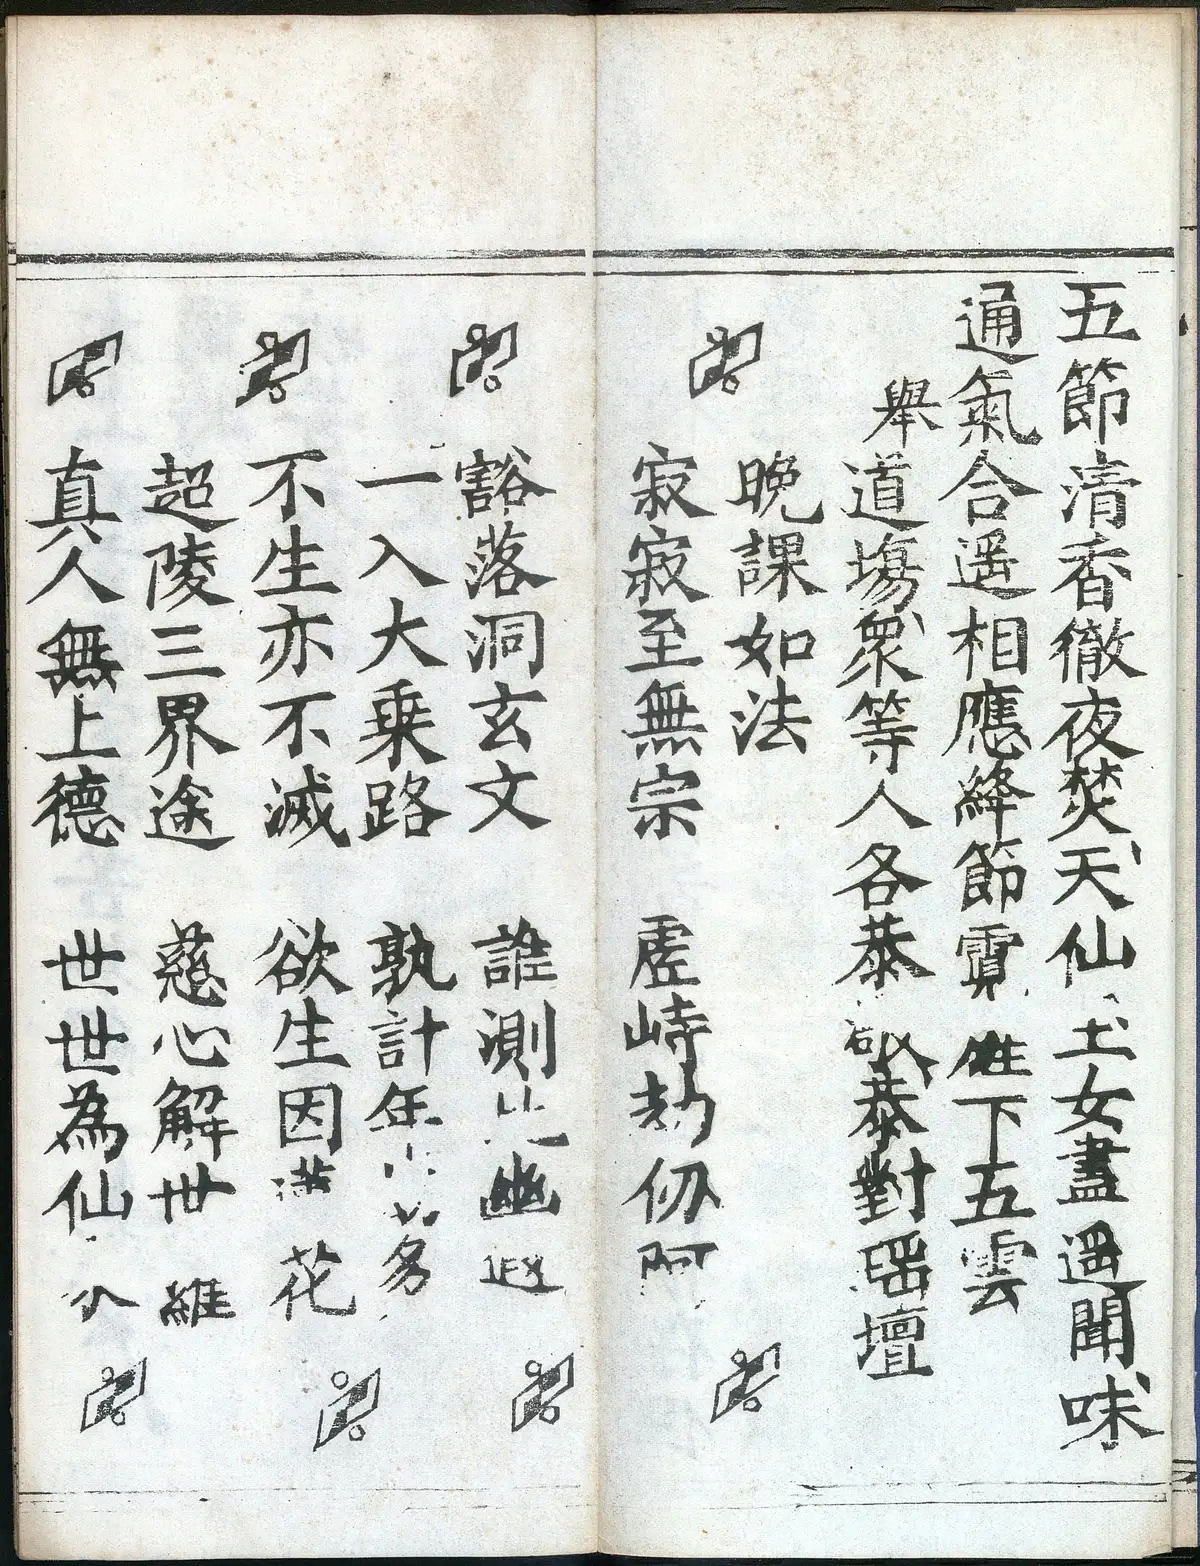 五節清香徹夜焚天仙玉女盡遥聞味
通氣合遥相應絳節霓 旌下五雲
舉道塲衆等人各恭敬恭對瑶壇
晚課如法
寂寂至無宗 虛峙劫仞阿
豁落洞玄文 誰測此幽遐
一入大乗路 孰計年 多
不生亦不滅 欲生因 花
超陵三界途 慈心解世 羅
真人無上德 世世為仙